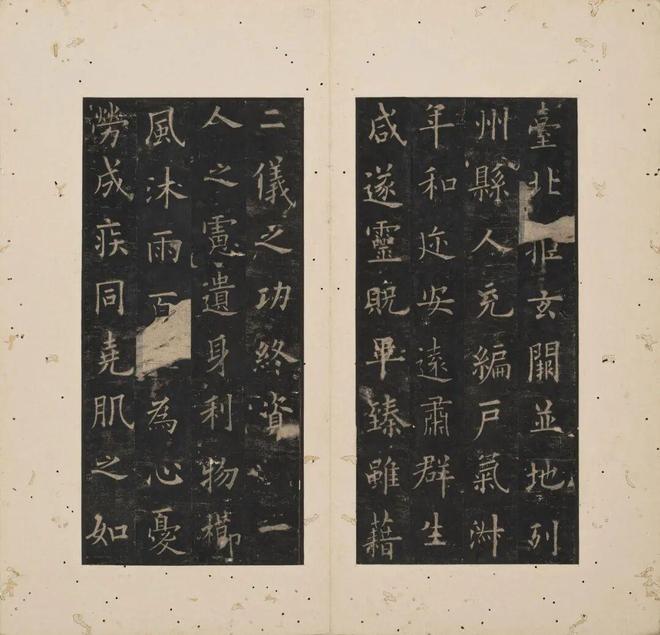 臺北 拒玄闕並地列
州縣人充編戶氣淑
年和迩安遠肅群生
咸遂靈貺畢臻雖藉
二儀之功終資 一
人之慮遺身利物櫛
風沐雨百 為心憂
勞成疾同堯肌之如